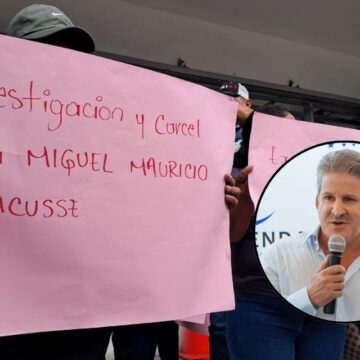 estigación y Carcel
MIGUEL MAURICIO
ACUSSE
END